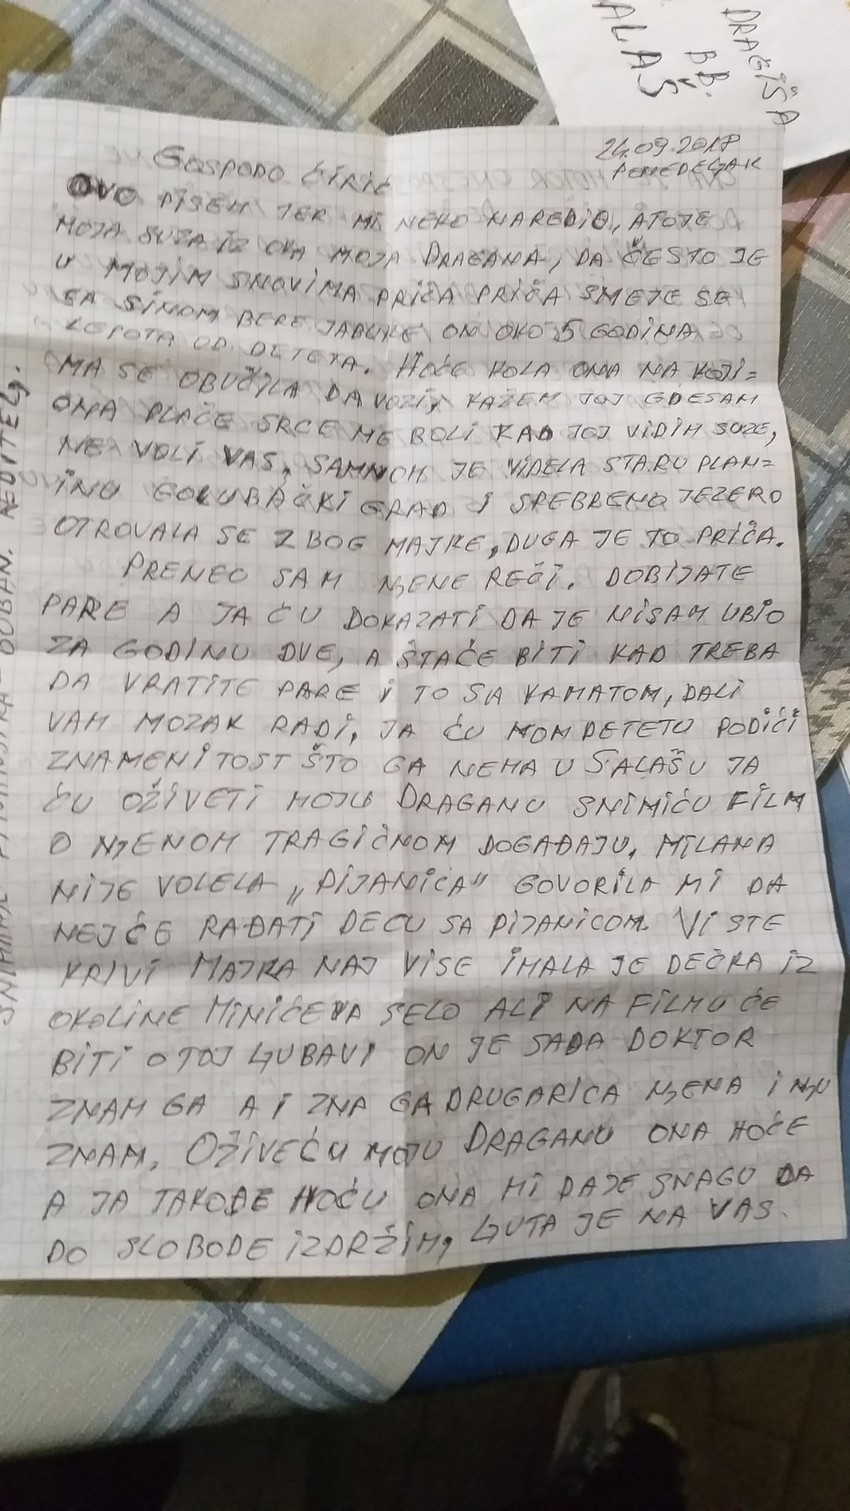 DRAGIŠA
BB.
ALAŠ
24.09.2018
PONEDELJAK
GOSPODO ĆIRIĆ
OVO PIŠEM JER MI NEKO NAREDIO, A TO JE
MOJA SUZA IZ OKA MOJA DRAGANA, DA ČESTO JE
U MOJIM SNOVIMA PRIČA PRIČA SMEJE SE
SA SINOM BERE JABUKE ON OKO 5 GODINA
LEPOTA OD DETETA. HOĆE KOLA ONA NA KOJI=
MA SE OBUČILA DA VOZI, KAŽEM JOJ GDE SAM
ONA PLAČE SRCE ME BOLI KAD JOJ VIDIM SUZE,
NE VOLI VAS, SAMNOM JE VIDELA STARU PLAN=
INU GOLUBAČKI GRAD I SREBRENO JEZERO
OTROVALA SE ZBOG MAJKE, DUGA JE TO PRIČA.
PRENEO SAM NJENE REČI. DOBIJATE
PARE A JA ĆU DOKAZATI DA JE NISAM UBIO
ZA GODINU DVE, A ŠTAĆE BITI KAD TREBA
DA VRATITE PARE I TO SA KAMATOM, DALI
VAM MOZAK RADI, JA ĆU MOM DETETU PODIĆI
ZNAMENITOST ŠTO GA NEMA U SALAŠU JA
ĆU OŽIVETI MOJU DRAGANU SNIMIĆU FILM
O NJENOM TRAGIČNOM DOGAĐAJU, MILANA
NIJE VOLELA „PIJANICA" GOVORILA MI DA
NEJĆE RAĐATI DECU SA PIJANICOM. VI STE
KRIVI MAJKA NAJ VIŠE IMALA JE DEČKA IZ
OKOLINE MINIĆEVA SELO ALI NA FILMU ĆE
BITI O TOJ LJUBAVI ON JE SADA DOKTOR
ZNAM GA A I ZNA GA DRUGARICA NJENA I NJU
ZNAM, OŽIVEĆU MOJU DRAGANU ONA HOĆE
A JA TAKOĐE HOĆU ONA MI DAJE SNAGU DA
DO SLOBODE IZDRŽIM, LJUTA JE NA VAS.